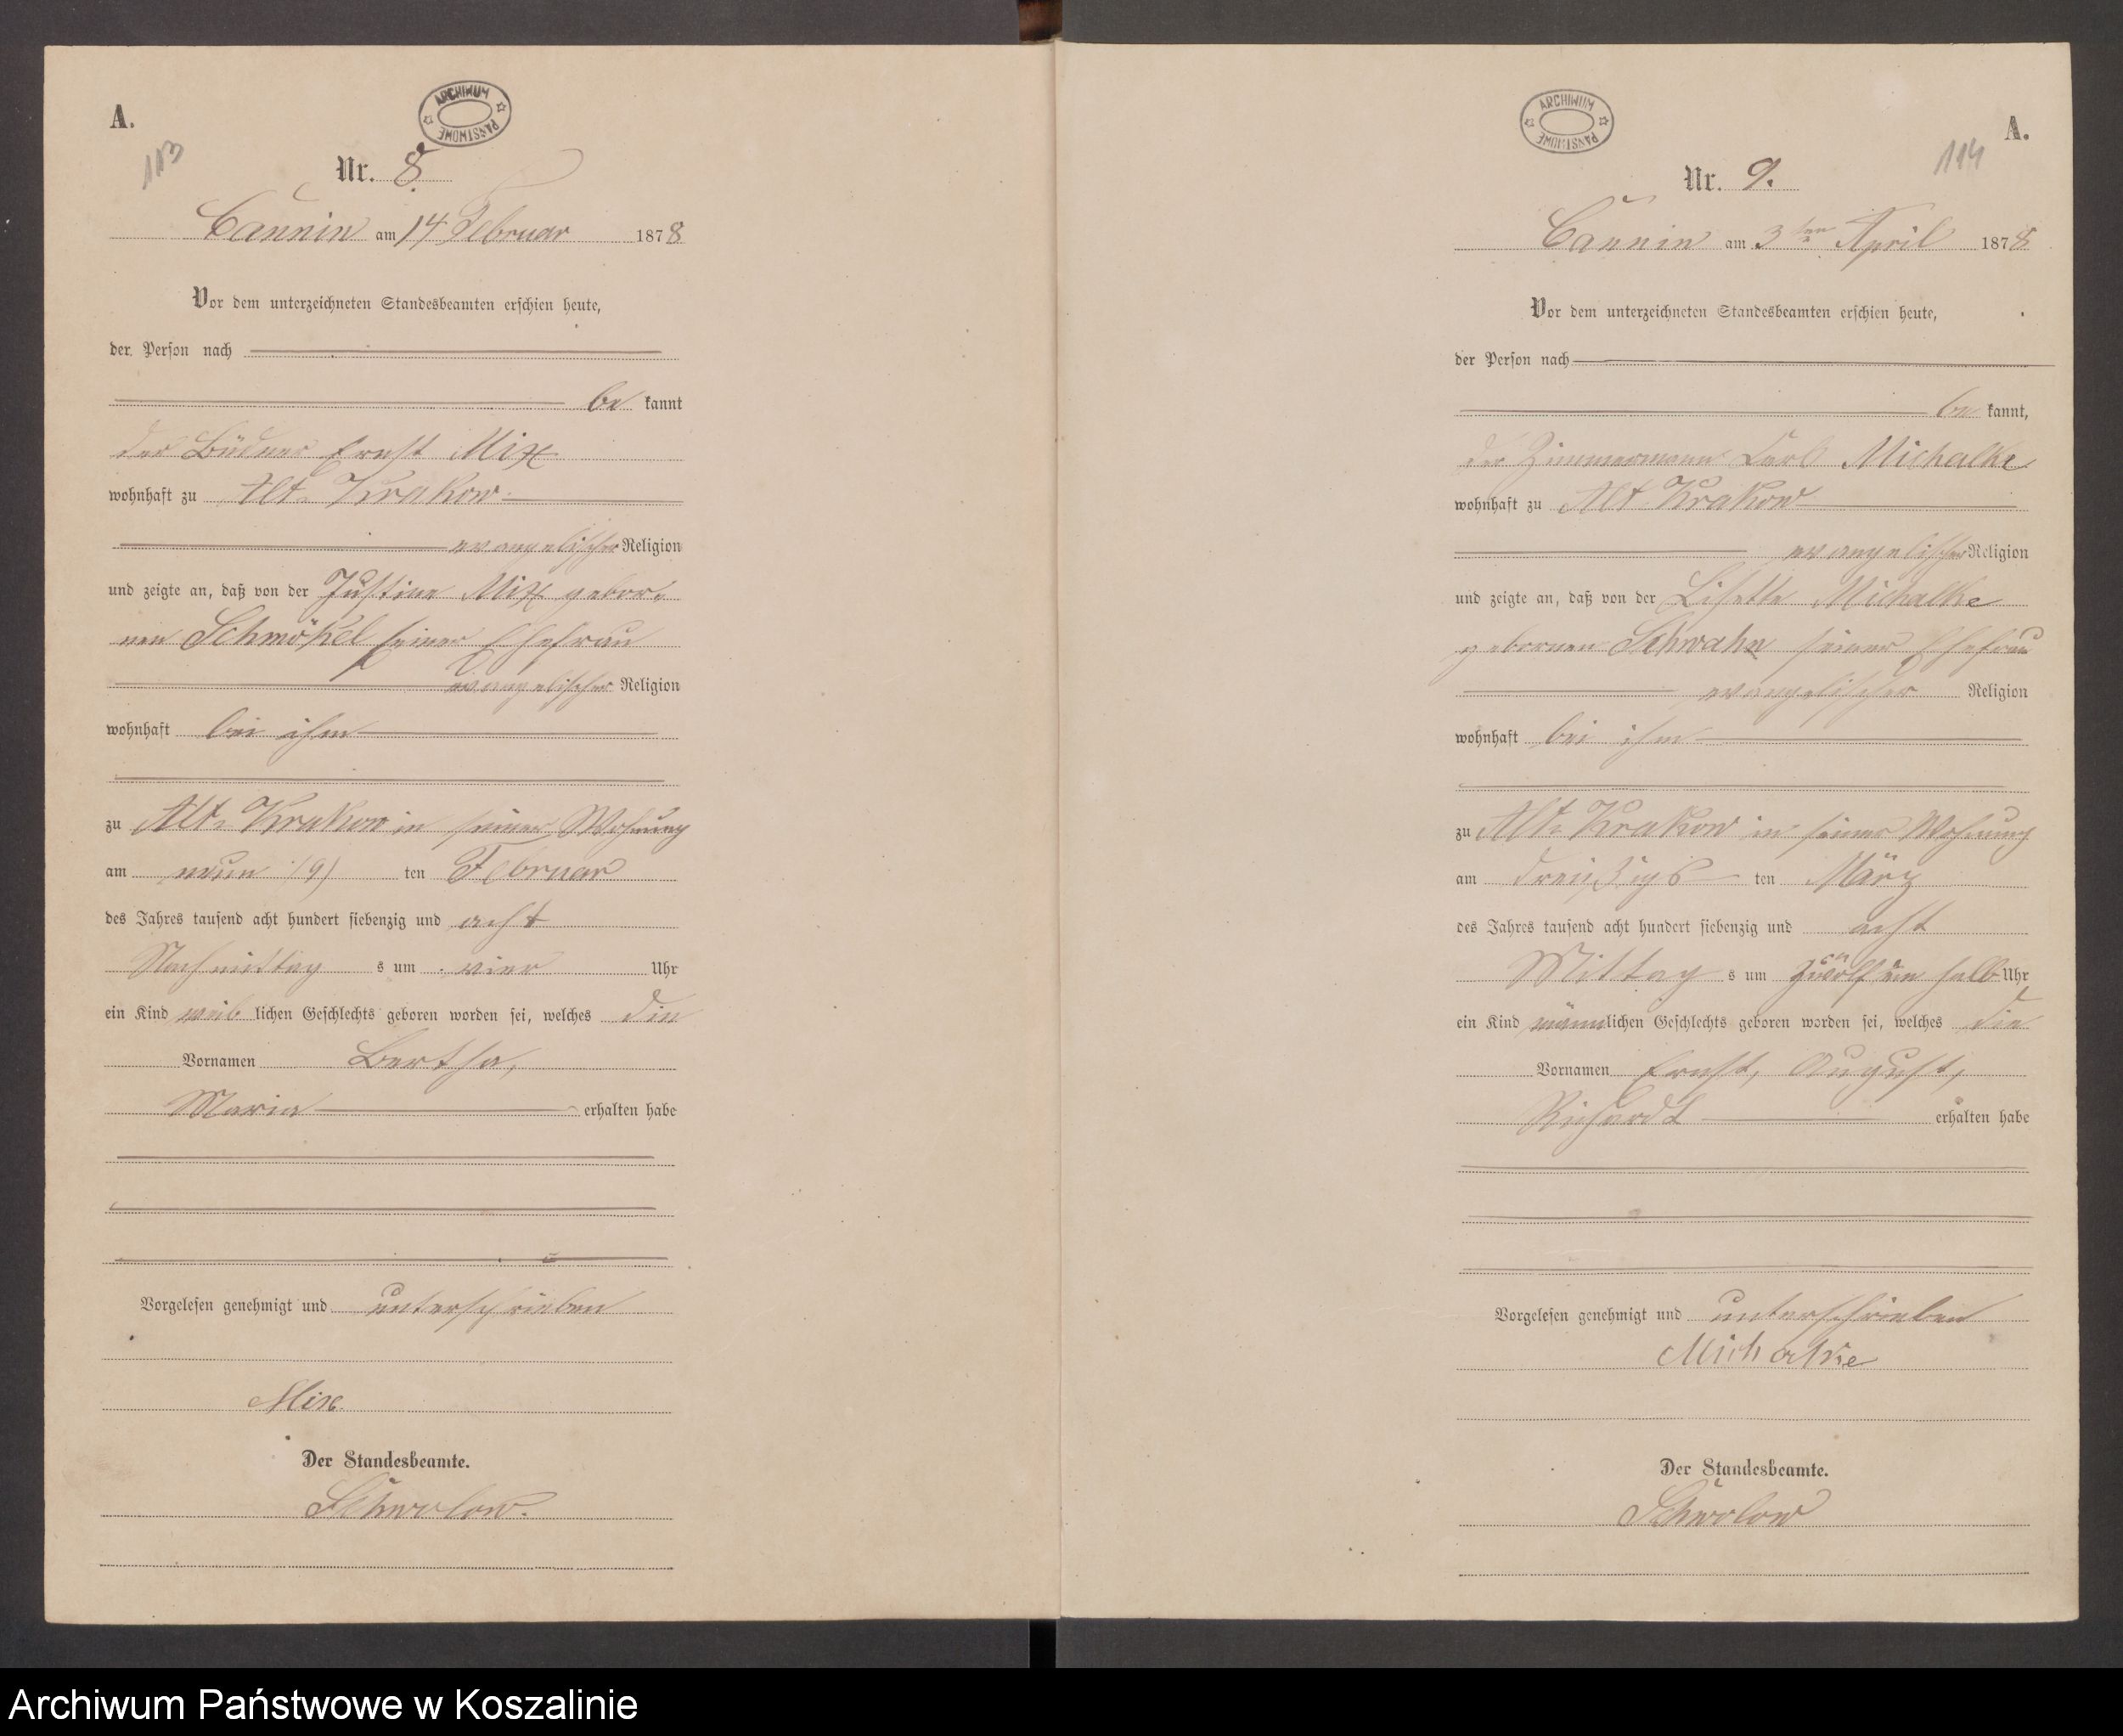 A.
113
ARCHIWUM PAŃSTWOWE
Nr. 8.
Cannin am 14 Februar 1878
Vor dem unterzeichneten Standesbeamten erschien heute,
der Person nach
be kannt
der Büdner Ernst Mix
wohnhaft zu Alt-Krakow
evangelischer Religion
und zeigte an, daß von der Justine Mix gebor-
nen Schmökel seiner Ehefrau
evangelischer Religion
wohnhaft bei ihm
zu Alt-Krakow in seiner Wohnung
am neun (9) ten Februar
des Jahres tausend acht hundert siebenzig und acht
Nachmittag s um vier Uhr
ein Kind weib lichen Geschlechts geboren worden sei, welches die
Vornamen Bertha,
Maria erhalten habe
Vorgelesen genehmigt und unterschrieben
Mix.
Der Standesbeamte.
Schwolow.
A.
114
ARCHIWUM PAŃSTWOWE
Nr. 9.
Cannin am 3ten April 1878
Vor dem unterzeichneten Standesbeamten erschien heute,
der Person nach
be kannt,
der Zimmermann Carl Michalke
wohnhaft zu Alt-Krakow
evangelischer Religion
und zeigte an, daß von der Lisette Michalke
gebornen Schwahn seiner Ehefrau
evangelischer Religion
wohnhaft bei ihm
zu Alt-Krakow in seiner Wohnung
am dreißigs ten März
des Jahres tausend acht hundert siebenzig und acht
Mittag s um zwölf ein halb Uhr
ein Kind männlichen Geschlechts geboren worden sei, welches die
Vornamen Ernst, August,
Richardt erhalten habe
Vorgelesen genehmigt und unterschrieben
Michalke
Der Standesbeamte.
Schwolow
Archiwum Państwowe w Koszalinie